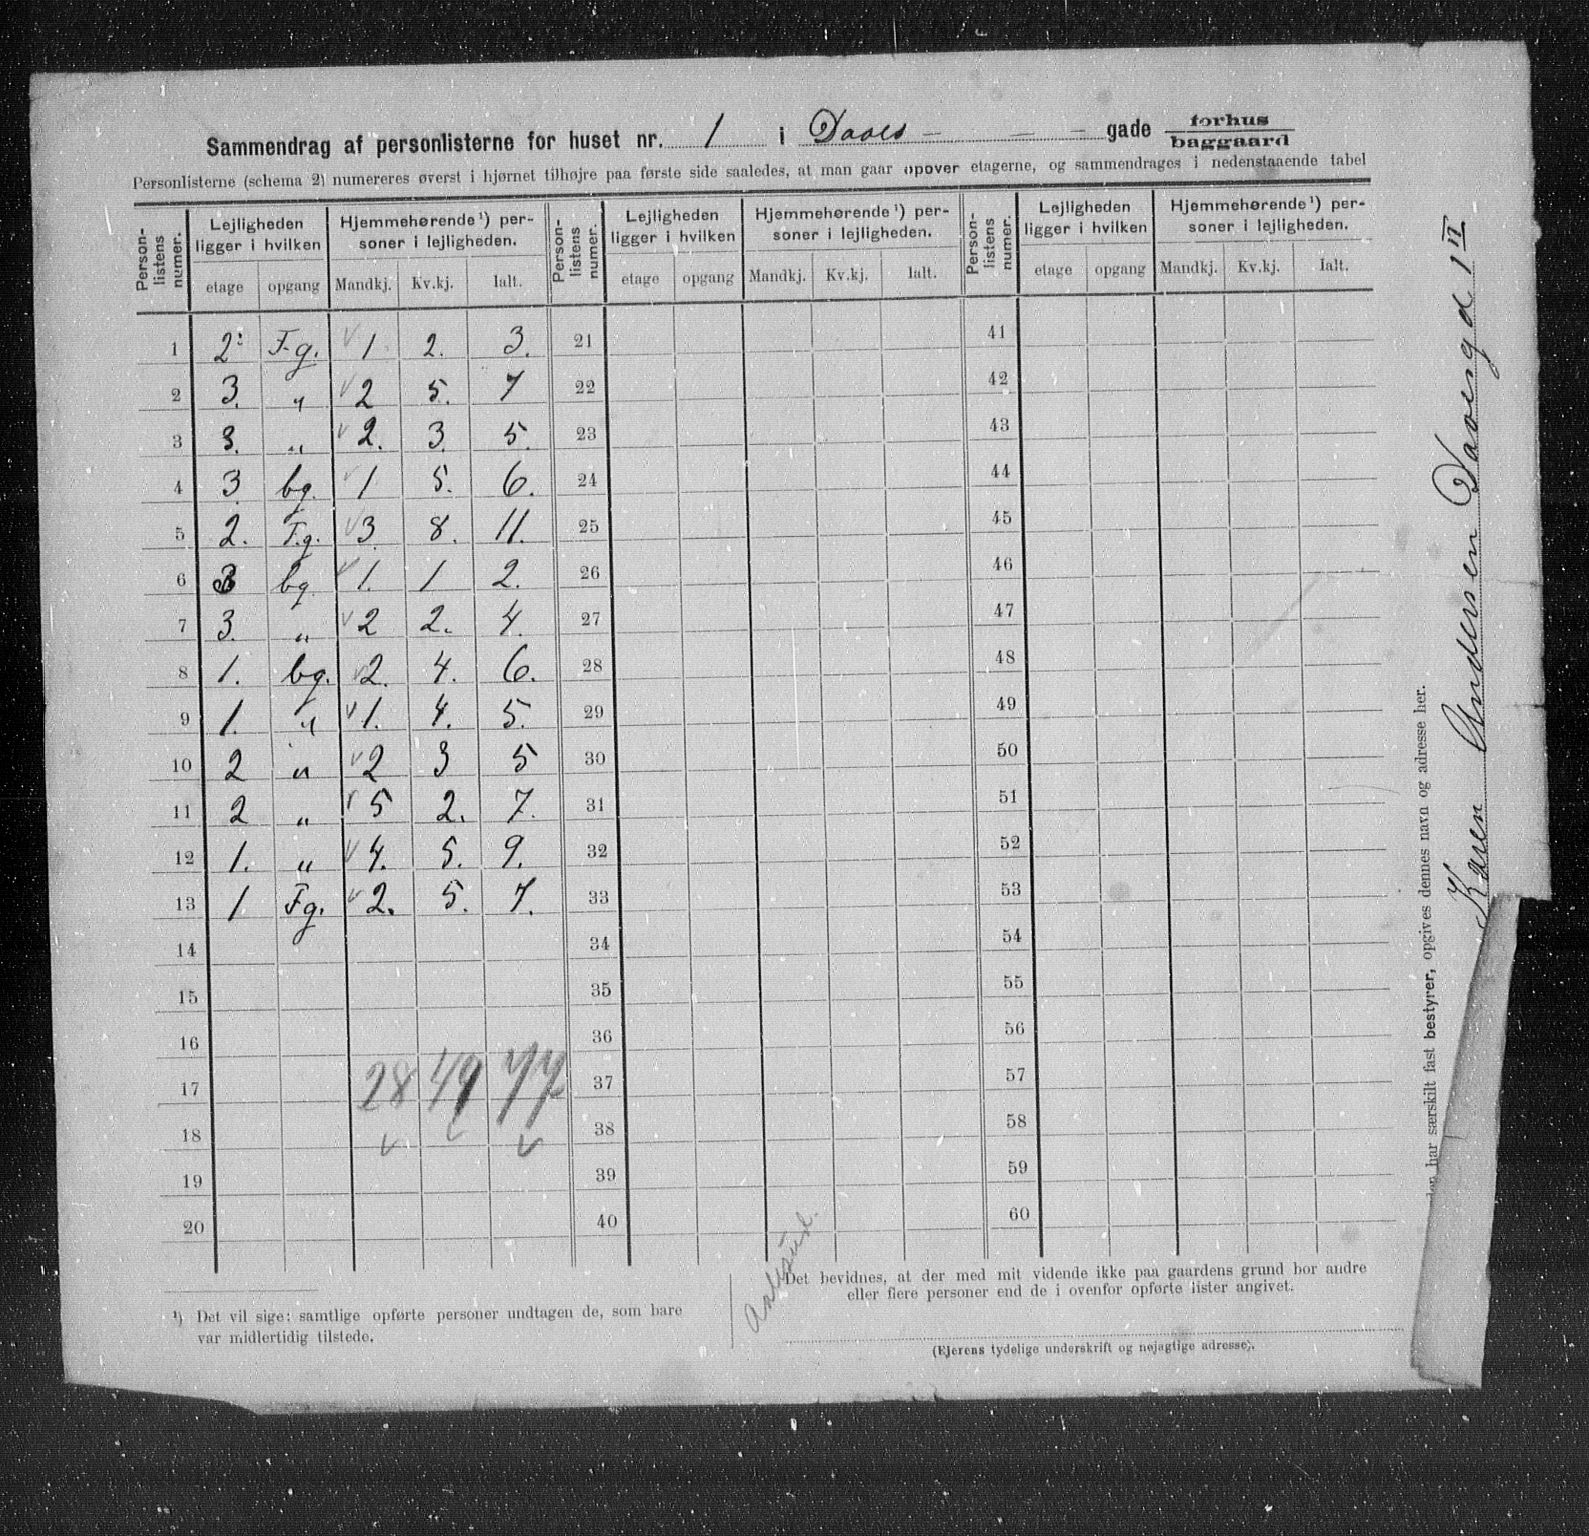 Sammendrag af personlisterne for huset nr. 1 i Daaes - - - gade forhus baggaard
Personlisterne (schema 2) numereres øverst i hjørnet tilhøjre paa første side saaledes, at man gaar opover etagerne, og sammendrages i nedenstaaende tabel
Person-listens numer. Lejligheden ligger i hvilken Hjemmehørende ¹) personer i lejligheden. Person-listens numer. Lejligheden ligger i hvilken Hjemmehørende ¹) personer i lejligheden. Person-listens numer. Lejligheden ligger i hvilken Hjemmehørende ¹) personer i lejligheden.
etage opgang Mandkj. Kv.kj. Ialt. etage opgang Mandkj. Kv.kj. Ialt. etage opgang Mandkj. Kv.kj. Ialt.
1 2: F.g. 1 2. 3. 21 41
2 3. " 2 5. 7 22 42
3 3. " 2. 3. 5. 23 43
4 3 bg. 1 5. 6. 24 44
5 2. F.g. 3. 8. 11. 25 45
6 3 bg. 1. 1 2. 26 46
7 3. " 2 2. 4. 27 47
8 1. bg. 2. 4. 6. 28 48
9 1. " 1. 4. 5. 29 49
10 2 " 2 3 5 30 50
11 2 " 5 2. 7. 31 51
12 1. " 4. 5. 9. 32 52
13 1 Fg. 2. 5. 7. 33 53
14 34 54
15 35 55
16 36 56
17 28 49 77 37 57
18 38 58
19 39 59
20 40 60
¹) Det vil sige: samtlige opførte personer undtagen de, som bare
var midlertidig tilstede.
Det bevidnes, at der med mit vidende ikke paa gaardens grund bor andre
eller flere personer end de i ovenfor opførte lister angivet.
(Ejerens tydelige underskrift og nøjagtige adresse).
har særskilt fast bestyrer, opgives dennes navn og adresse her.
Karen Andersen 1 II